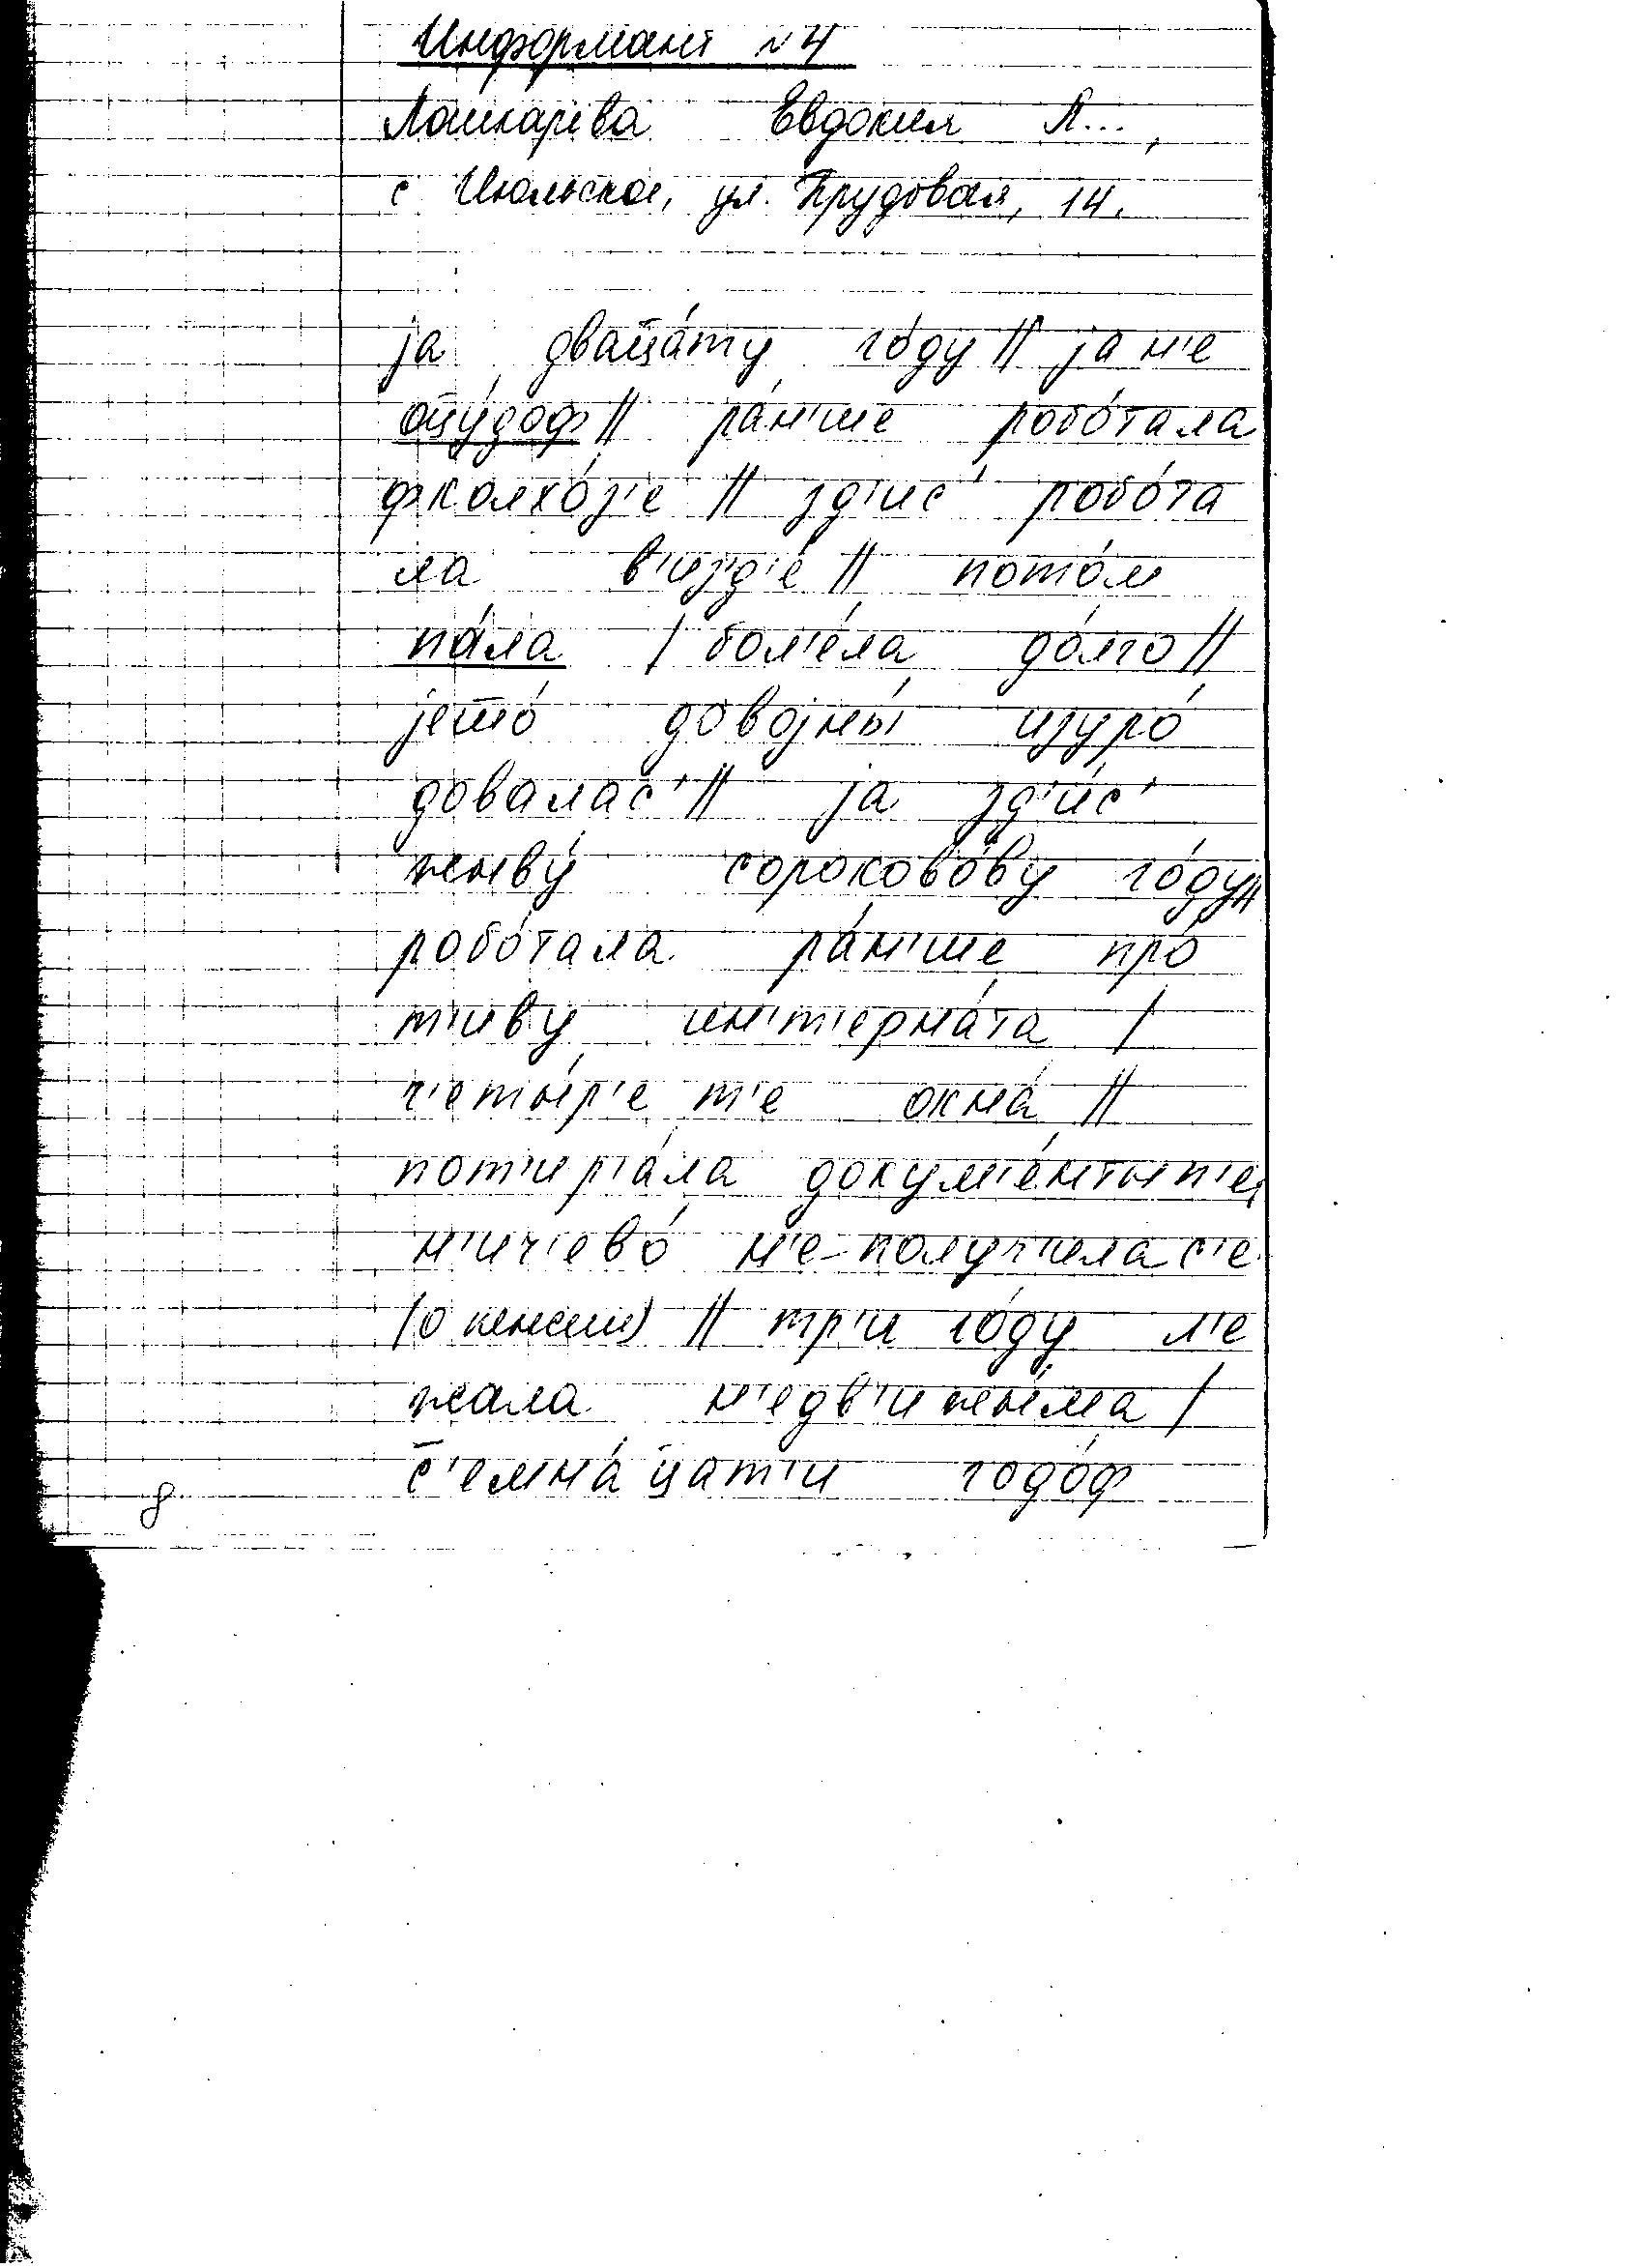 Информант №4
Лошкарева Евдокия А...,
с Июльское, ул. Прудовая, 14.
jа двац̄а́ту го́ду // jа н'е
оц̄у́доф // ра́н'ше робо́тала
фколхо́з'е // зд'ис' робо́та
ла в'из'д'е́ // пото́м
па́ла / бол'е́ла до́лго //
jешо́ довоjны́ изуро́
довалас' // jа зд'и́с'
жыву́ сороково́ву го́ду //
робо́тала ра́н'ше про́
т'иву ин'т'ерна́та /
ч'еты́р'е т'е окна́ //
пот'ир'а́ла докум'е́нты н'е
н'ич'ево́ н'е-получ'илас'е
(о пенсии) // тр'и го́ду л'е
жала н'едв'ижы́ма /
с̄'емна́ц̄ат'и годо́ф
8